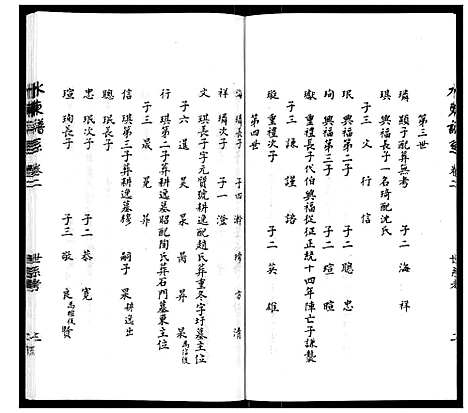 第三世
璘 顥子配葬無考 子二 海 祥
琪 興福長子一名琦配沈氏
子三 文 行 信
珉 興福第二子 子二 聰 忠
珣 興福第三子 子二 瑄 瓊
璇 重禮長子代伯興福從征正統十四年陣亡子謙襲
子三 謙 謹 諮
璇 重禮次子 子二 英 雄
第四世
海 璘長子 子四 瀚 瑧 方 清
祥 璘次子 子一 澄
文 琪長子字元質號耕逸配趙氏葬重冬字圩墓主位
子六 暹 昊 昺 昇 杲為信後
行 琪第二子葬耕逸墓昭配陶氏葬石門墓東主位
子三 晟 冕 昴
信 琪第三子葬耕逸墓穆 嗣子 杲耕逸出
聰 珉長子
忠 珉次子 子二 恭 寬
瑄 珣長子 子三 敬 良為瓊後 賢
世系考